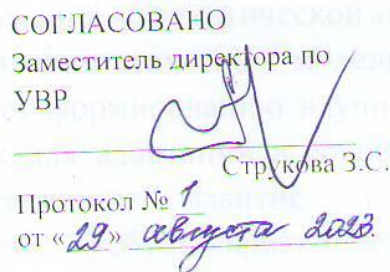 СОГЛАСОВАНО
Заместитель директора по
УВР
Струкова З.С.
Протокол № 1
от «29» августа 2023.